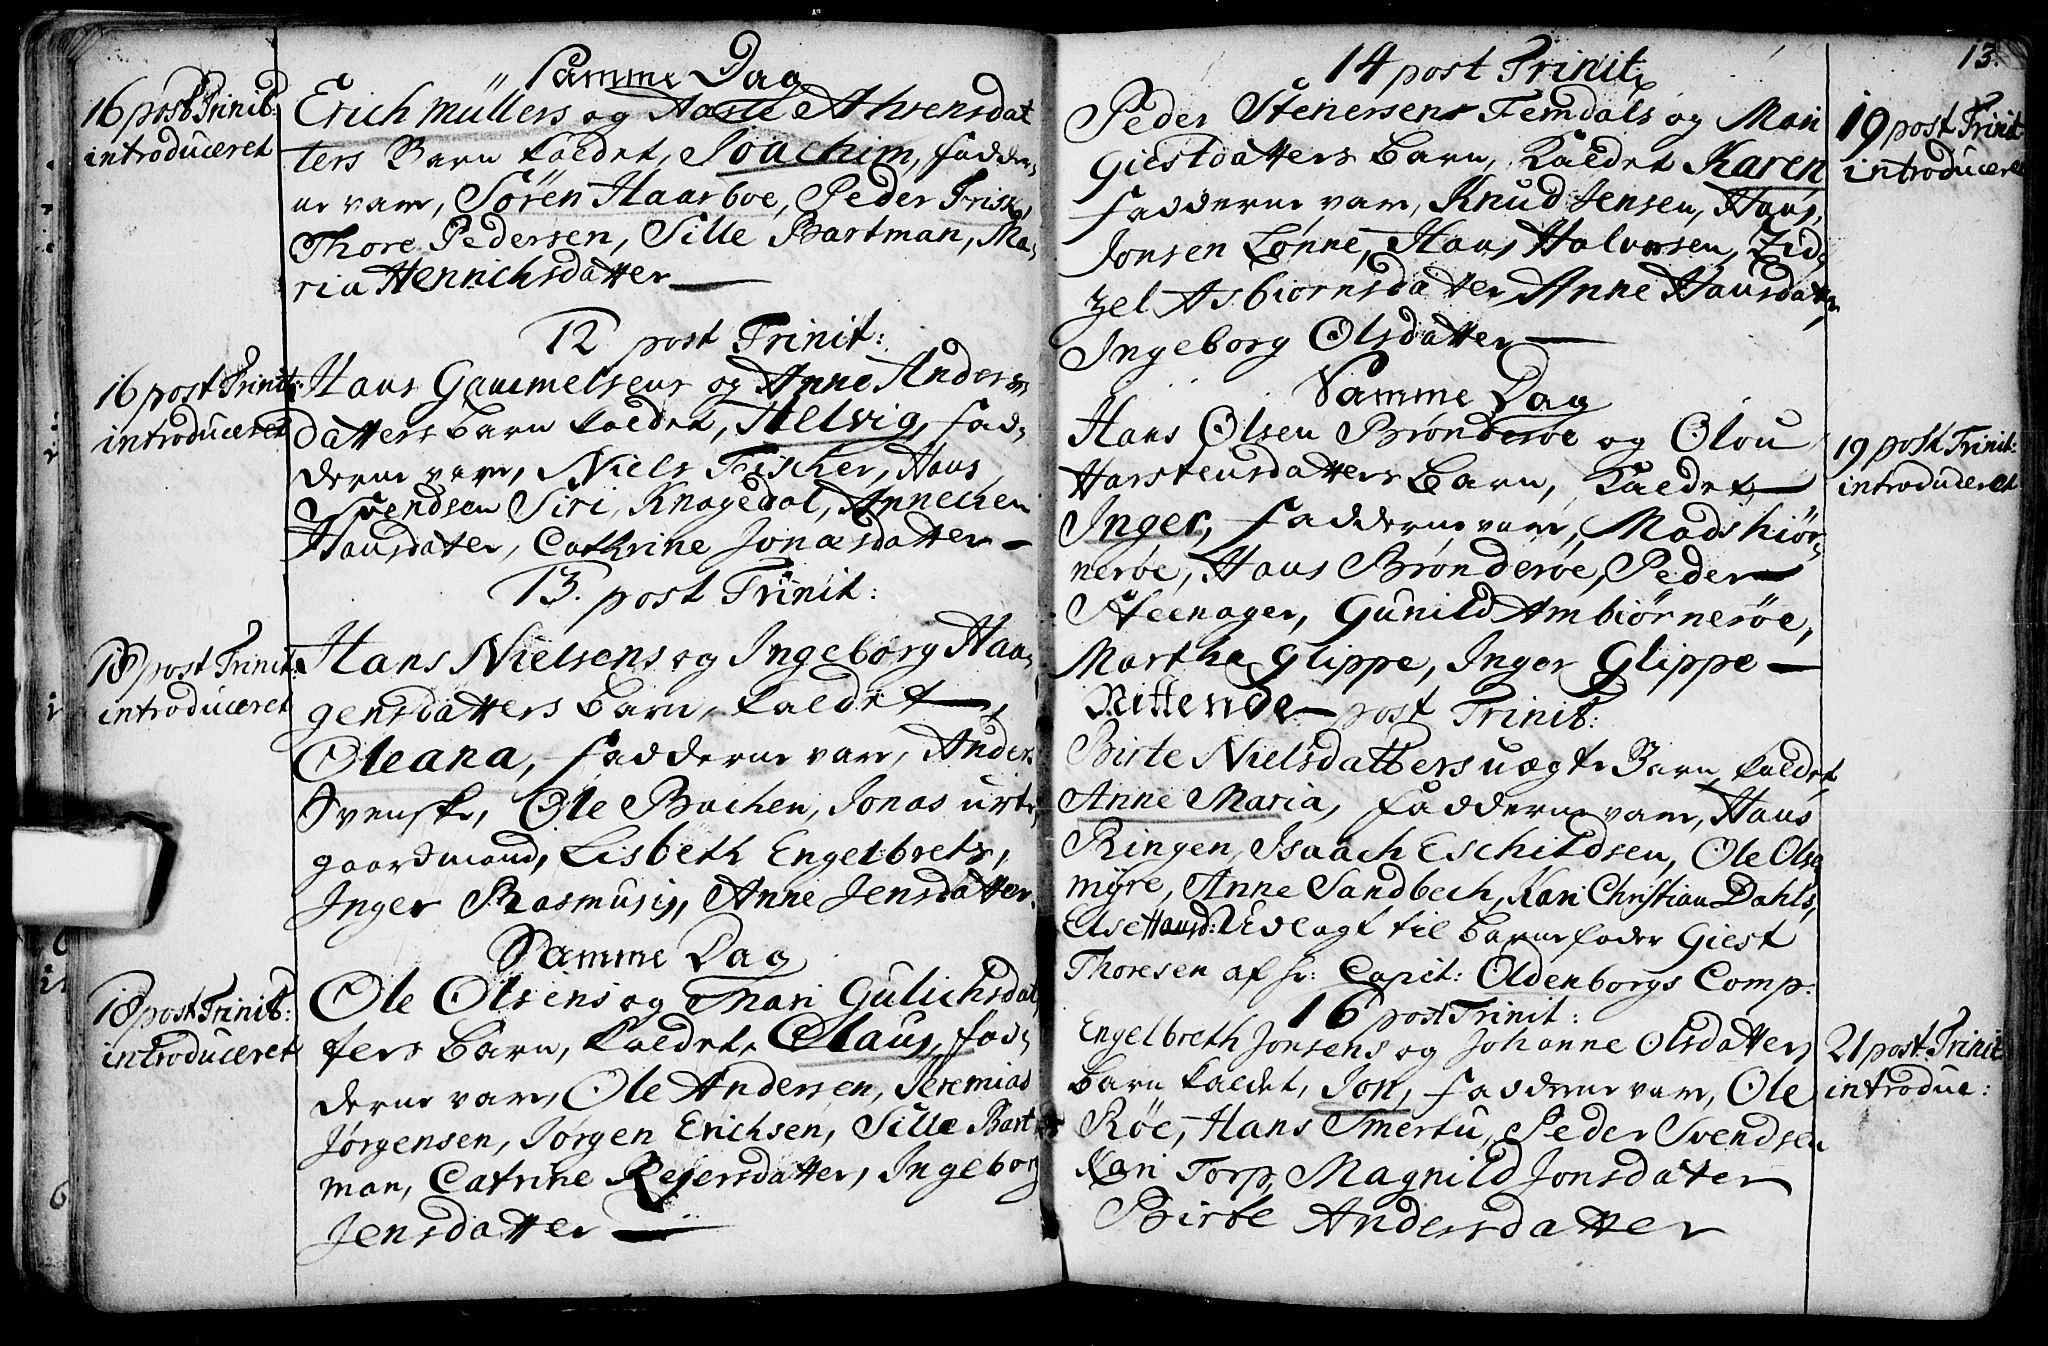 Samme Dag
16 post Trinit:
introduceret
Erich Müllers og Ahrensdat
ters Barn kaldet, Joachim, Fadder,
ne vare, Sören Haarboe, Peder Frisk,
Thore Pedersen, Sille Bartman, Ma,
ria Henrichsdatter
12 post Trinit:
16 post Trinit:
introduceret
Hans Gammelsens og Anne Anders
datters Barn kaldet, Helvig, Fad,
derne vare, Niels Fischer, Hans
Svendsen Siri, Knagedal, Annechen
Hansdater, Cathrine Jonæsdatter
13. post Trinit:
18 post Trinit:
introduceret
Hans Nielsens og Ingeborg Haa,
gensdatters Barn, kaldet
Oleana, Fadderne vare, Anders
Svenske, Ole Bachen, Jonas urte,
gaardmand, Lisbeth Engelbrets,
Inger Rasmusis, Anne Jensdatter.
Samme Dag
18 post Trinit:
introduceret
Ole Olsens og Mari Gulichsdat,
ters Barn, kaldet, Claus, Fad,
derne vare, Ole Andersen, Jeremias
Jørgensen, Jørgen Erichsen, Sille Bart
man, Catrine Rejersdatter, Ingeborg
Jensdatter
13.
14 post Trinit:
Peder Stenersens Femdals og Mari
Giestdatters Barn, Kaldet Karen
Fadderne vare, Knud Jensen, Hans
Jonsen Lønne, Hans Halvorsen, Zid,
zel Asbiornsdatter, Anne Hansdatter,
Ingeborg Olsdatter
19 post Trinit
introduceret
Samme Dag
Hans Olsen Brønderøe og Olou
Harstensdatters Barn, Kaldet
Inger, Fadderne vare, Mads hiör,
neröe, Hans Brønderøe, Peder
Steenager, Gunild Ambiörneröe,
Martha Glippe, Inger Glippe
19 post Trinit:
introduceret
Nittende post Trinit:
Birte Nielsdatters uægte Barn kaldet,
Anne Maria, Fadderne vare, Hans
Ringen, Isaach Eschildsen, Ole Olse
myre, Anne Sandbech, Kari Christian Dahls,
Else Hansd: Udlagt til Barnefader Giest
Thoresen af hr: Capit: Oldenborgs Comp:
16 post Trinit:
Engelbreth Jonsens og Johanne Olsdatters
Barn kaldet, Jon, Fadderne vare, Ole
Röe, Hans Smertu, Peder Svendsen
Kari Torp, Magnild Jonsdater
Birte Andersdatter
21 post Trinit
introduc: